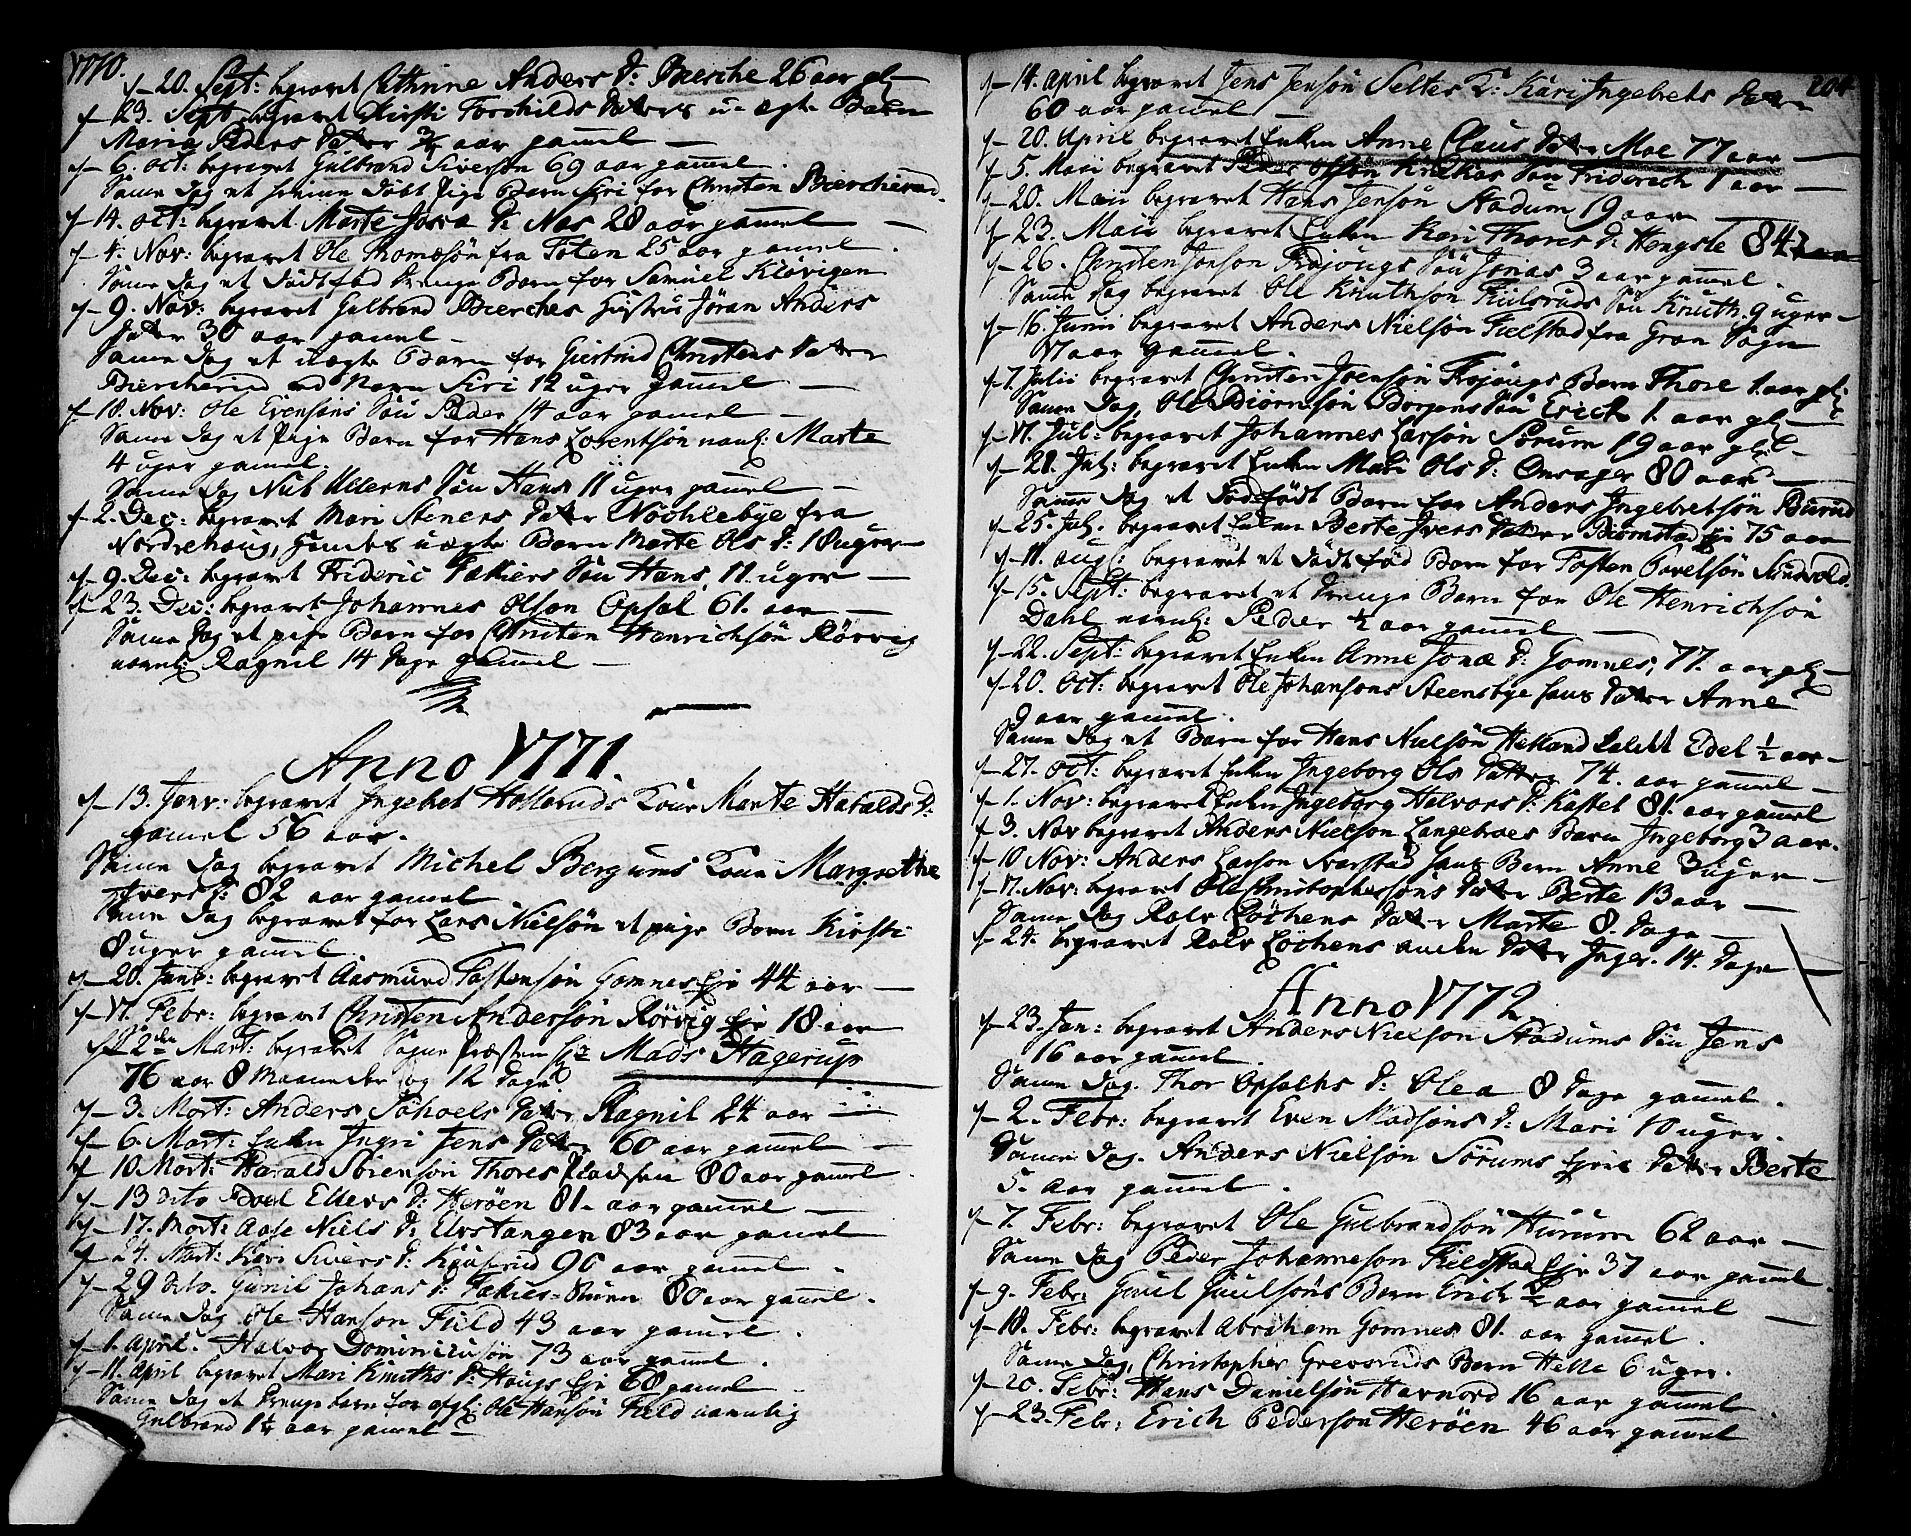 1770.
d – 20. Sept: begravet Cathrine Anders D: Bierche 26 aar gl –
d – 23. Sept begravet Kirsti Torchilds Datters u-ægte Barn
Maria Peders Datter 3/4 aar gamel –
d – 6. oct: begravet Gulbrand Siversøn 69 aar gamel.
Same Dag et hieme døbt Pige Barn Siri for Christen Biercherud.
d – 14. oct: begravet Marte Josva D: Nas 28 aar gamel –
d – 4. Nov: begravet Ole Thomæsøn fra Toten 25 aar gamel.
Same Dag et Dødfød Drenge Barn for Samuel Kløvigen
d – 9. Nov: begravet Gulbrand Bierches Hustru Jøran Anders
Dater 30 aar gamel –
Same Dag et uægte Barn for Giertrud Christens Datter
Biercherud ved Navn Siri 12 uger gamel –
d – 18. Nov: Ole Evensøns Søn Peder 14 aar gamel –
Same Dag et Pige Barn for Hans Lorentsøn navnl: Marte
4 uger gamel.
Same Dag Nub Ullerns Søn Hans 11 uger gamel –
d – 2. Dec: begravet Mari Steners Datter Nochlebye fra
Nordrehoug, hendes uægte Barn Marte Ols D: 18 uger –
d – 9. Dec: begravet Frideric Fakiers Søn Hans, 11. uger –
d – 23. Dec: begravet Johannes Olson Opsal 61. aar –
Same Dag et pige Barn for Christen Henrichsøn Rørvig
navnl: Ragnil 14 Dage gamel –
Anno 1771.
d – 13. Janv: begravet Ingebet Holleruds Kone Marte Haralds D:
gamel 56 aar.
Same Dag begravet Michel Bergums Kone Margrethe
Ivers D: 82 aar gamel
Same Dag begravet for Lars Nielsøn et pige Barn Kirsti
8 uger gamel.
d – 20. Janv: begravet Aasmund Tostensøn Gomnes Eje 44 aar –
d – 17. Febr: begravet Christen Andersøn Rørvig Eje 18 aar
d – 2den Mart: begravet Sogne Præsten Hr Mads Hagerup
76 aar 8 Maaneder og 12 Dage
d – 3. Mart: Anders Sohoels Datter Ragnil 24 aar –
d – 6. Mart: Enken Ingri Jens Datter 60 aar gamel –
d – 10 Mart: Harald Sørensøn Thores Pladsen 80 aar gamel.
d – 13 dito Boel Ellevs D: Herøen 81. aar gamel –
d – 17. Mart: Aase Niels D: Elvstangen 83 aar gamel
d – 24. Mart: Kari Sivers D: 90 aar gamel –
d – 29 dito. Gunil Johans D: Fakies-Stuen 80 aar gamel.
Same Dag Ole Hanson Field 43 aar gamel.
d – 1. April. Halvor Dominicusøn 73 aar gamel.
d – 11. April begravet Mari Knuths D: Hougs Eje 68 gamel –
Same Dag et Drenge barn for afgl: Ole Hansøn Field navnlig
Gulbrand 1 1/4 aar gamel –
204
d – 14. april begravet Jens Jensøn Seltes K: Kari Ingebrets Datter
60 aar gamel –
d – 20. April begravet Enken Anne Claus Datter Moe 77 aar –
d – 5. Maii begravet Peder Olsøn Søn Friderich 1 aar –
d – 20. Maii begravet Hans Jensøn Stadum 19 aar –
d – 23. Maii begravet Enken Kari Thores D: Hengsle 84 aar
d – 26. Christen Jonson Frøjougs Søn Jonas 3 aar gamel.
Same Dag begravet Ole Knuthson Fielsruds Søn Knuth. 9 uger –
d – 16. Junii begravet Anders Nielsøn Fielstad fra Gran Sogn
17 aar gamel.
d – 7. Julii begravet Christen Joensøn Frøjougs Barn Thore 1. aar gl:
Same Dag, Ole Biørnsøn Borgens Søn Erich 1. aar gl –
d – 17. Jul: begravet Johannes Larsøn Sørum 19 aar gl –
d – 21. Jul: begravet Enken Mari Ols D: Onsager 80 aar –
Same Dag et Dødfødt Barn for Anders Ingebretsøn Burud
d – 25. Jul. begravet Enken Berte Ivers Datter Biørnstad Eje 75 aar
d – 11. aug: begravet et Dødtfød Barn for Tosten Povelsøn Sundvold.
d – 15. Sept: begravet et Drenge Barn for Ole Henrichsøn
Dahl navnl: Peder 1/2 aar gamel –
d – 22. Sept: begravet Enken Anne Jonæ D: Gomnes, 77. aar gl –
d – 20. Oct: begravet Ole Johansons Steensbye hans Datter Anne
9 aar gamel.
Same Dag et Barn for Hans Nielsøn Helland kaldet Edel 1/2 aar –
d – 27. Oct: begravet Enken Ingeborg Ols Datter 74. aar gamel –
d – 1. Nov: begravet Enken Ingeborg Halvors D: Kastet 81. aar gamel
d 3. Nov begravet Anders Nielsøn Langebroes Barn Ingeborg 3 aar.
d – 10 Nov: Anders Larson Svarstad hans Barn Anne 3 uger –
d – 17. Nov: begravet Ole Christophersøns Datter Berte 13 aar –
Same Dag Rolv Løchens Datter Marte 8. Dage –
d – 24. begravet Rolv Løchens anden Datter Inger. 14. Dage –
Anno 1772.
d – 23. Jan: begravet Anders Nielson Stadums Søn Jens
16 aar gamel.
Same Dag. Thor Opsahls D: Olea 8 Dage gamel.
d – 2. Febr: begravet Even Madsøns D: Mari 10 uger.
Same Dag. Anders Nielsøn Sørums Eje Datter Berte
5. aar gamel.
d – 7. Febr: begravet Ole Gulbrandsøn Hurum 62 aar –
Same Dag Peder Johanneson Fielstad Eje 37 aar gamel
d – 9. Febr: Guul Guulsøns Barn Erich 1/2 aar gamel
d – 18. Febr: begravet Abraham Gomnes 81. aar gamel.
Same Dag, Christopher Grevsruds Barn Helle 6 uger.
d – 20. Febr: Hans Danielsøn Havnord 16 aar gamel
d – 23. Febr: Erich Pederson Herøen 46 aar gamel